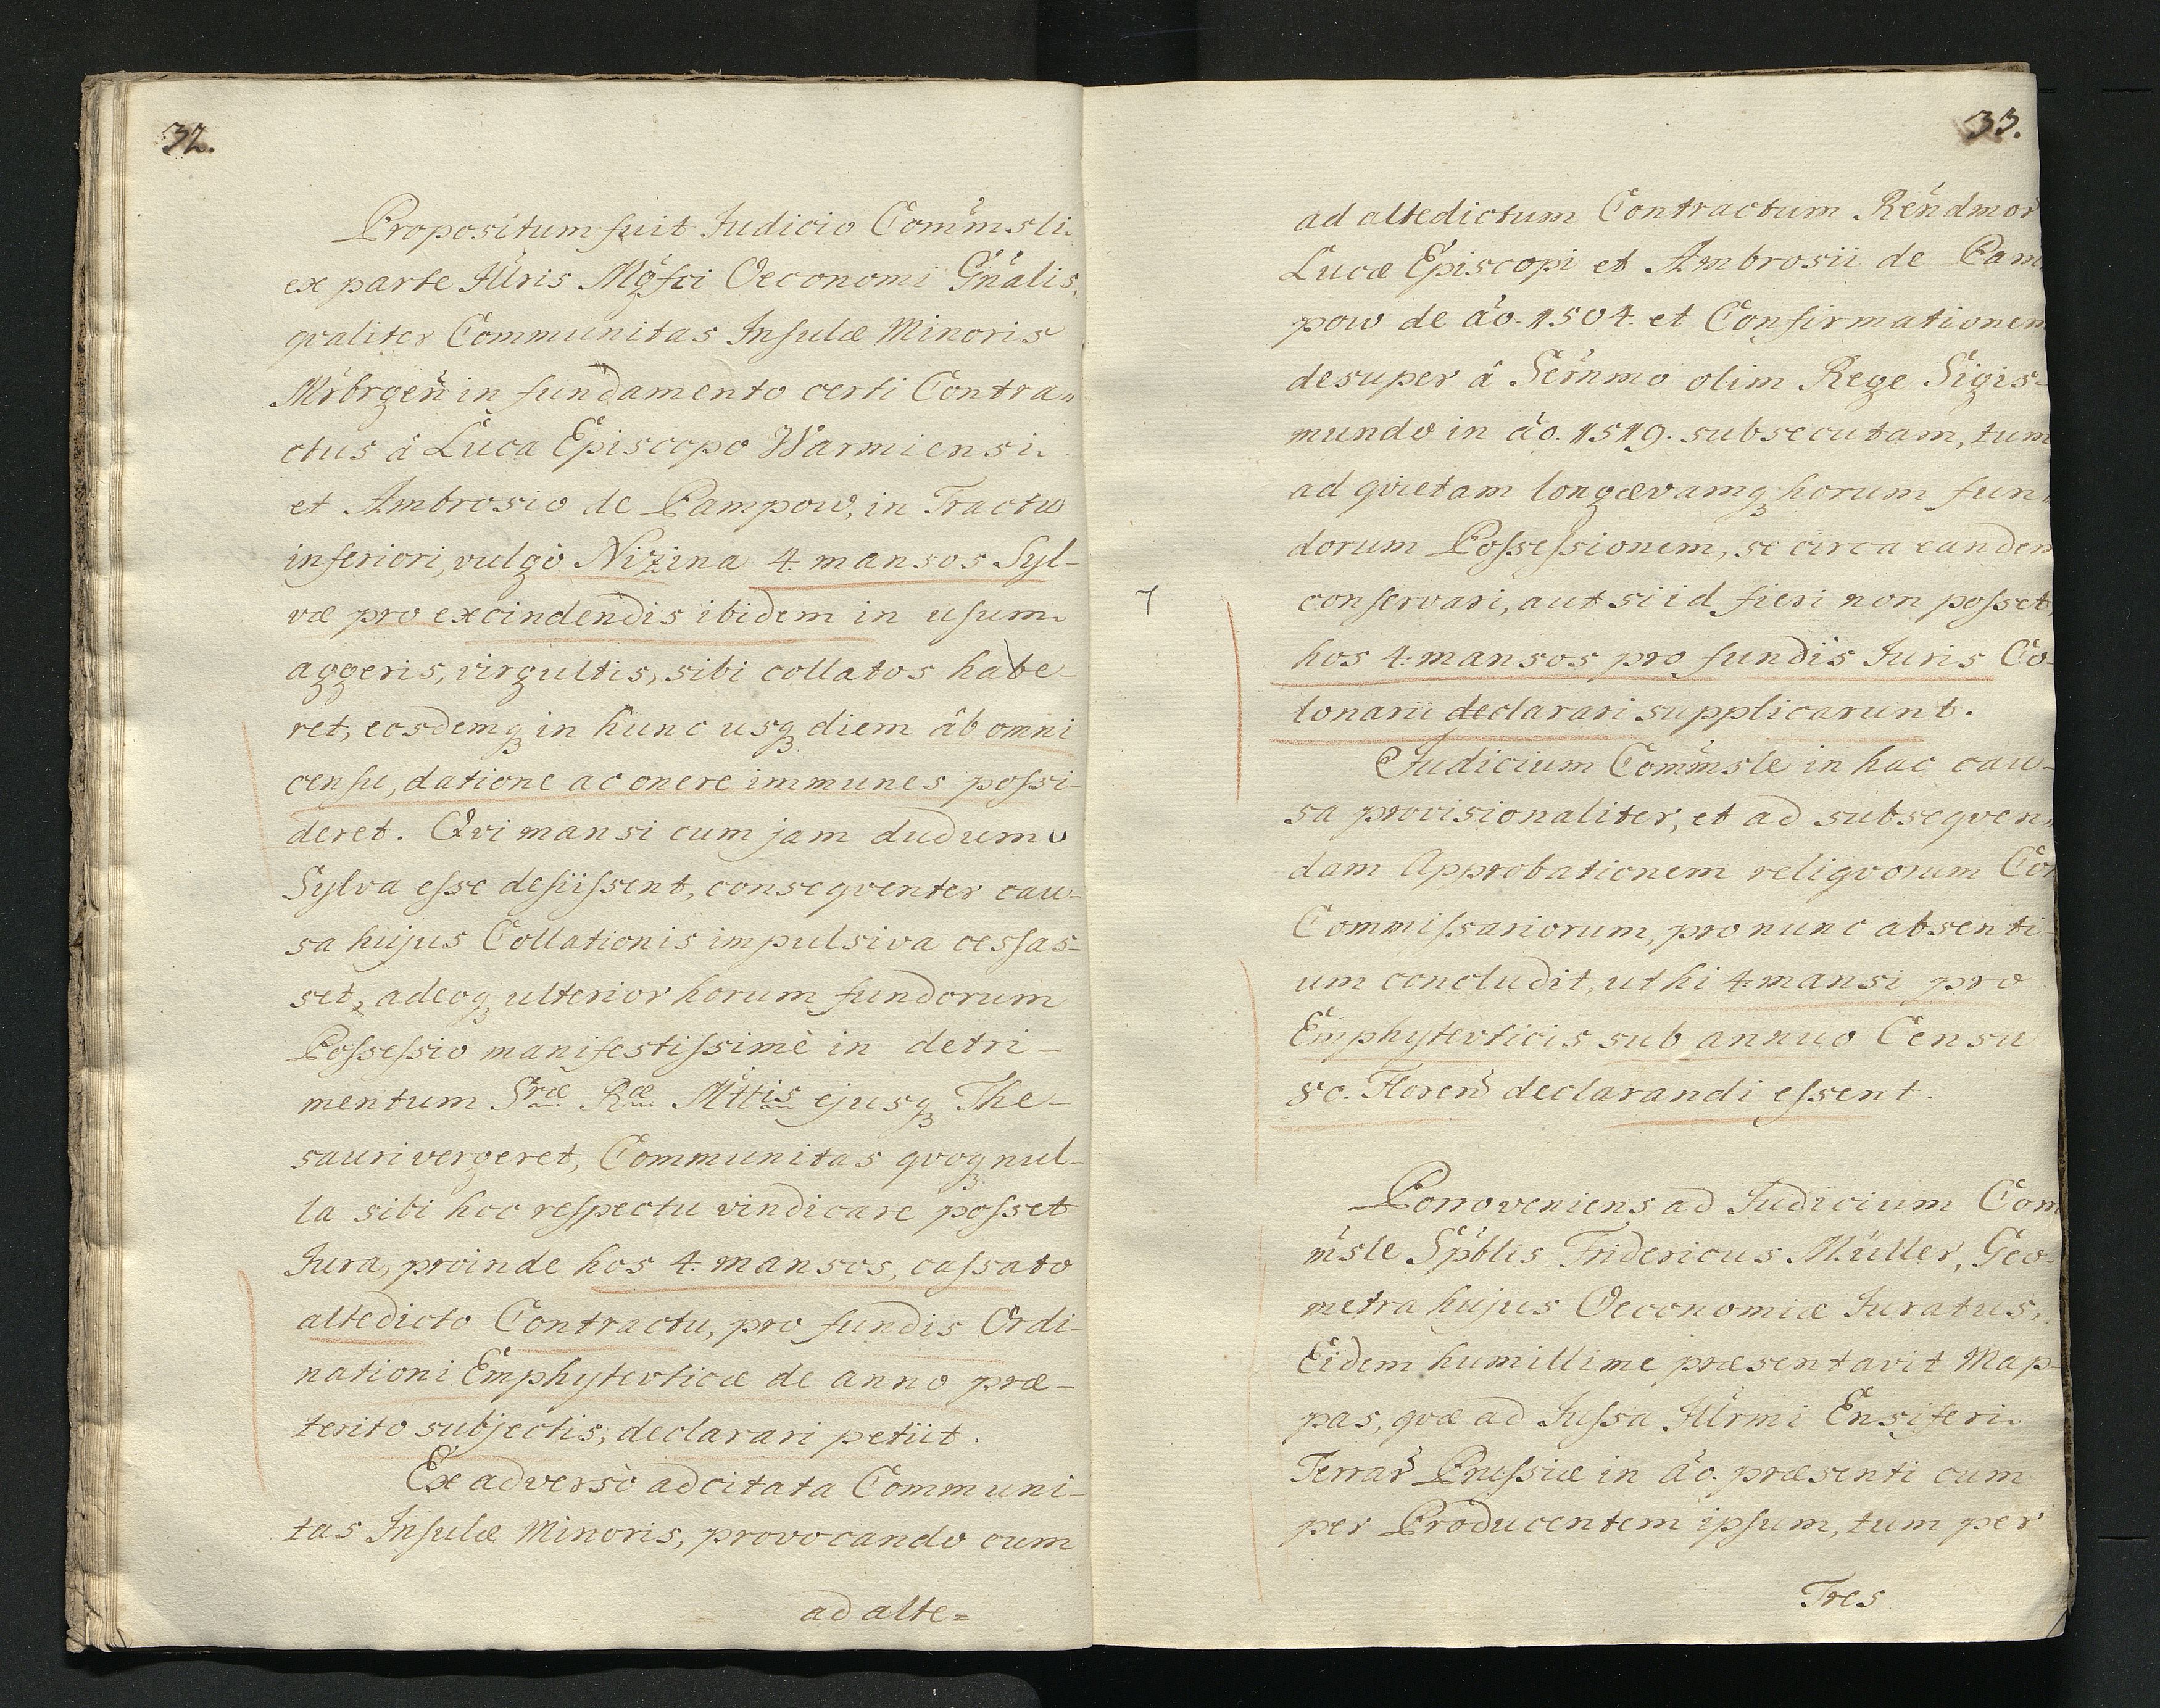 32.
Propositum fuit Judicio Com̃msli.
ex parte Jllris Mgfci Oeconomi Gñalis,
qvaliter Communitas Insulæ Minoris
Mrbrgeñ in fundamento certi Contra„
ctus â Luca Episcopo Warmiensi.
et Ambrosio de Pampow, in Tractu
inferiori, vulgò Niżina 4. mansos Syl-
væ pro excindendis ibidem in usum.
aggeris, virgultis, sibi collatos habe-
ret, eosdemq3 in hunc usq3 diem âb omni
censu, datione ac onere immunes possi-
deret. Qvi mansi cum jam dudum
Sylva esse desiissent, conseqventer cau-
sa hujus Collationis impulsiva cessas-
set, adeoq3 ulterior horum fundorum
Possessio manifestissimè in detri-
mentum Sræ Ræ Mttis ejusq3 The-
sauri vergeret, Communitas qvoq3 nul-
la sibi hoc respectu vindicare posset
Jura, proinde hos 4. mansos, cassato
altedicto Contractu, pro fundis Ordi-
nationi Emphytevticæ de anno præ-
terito subjectis, declarari petiit.
Ex adversò adcitata Communi-
tas Insulæ Minoris, provocando cum
ad alte=
33.
ad altedictum Contractum Reñdmor
Lucæ Episcopi et Ambrosii de Pam
pow de ão. 1504. et Confirmationem
desuper â Sern̄mo olim Rege Sigis-
mundo in ão. 1519. subsecutam, tum
ad qvietam longævamq3 horum fun„
dorum Possessionem, se circa eandem
conservari, aut si id fieri non posset,
hos 4. mansos pro fundis Juris Co-
lonarii declarari supplicarunt.
Judicium Com̃msle in hac cau-
sa provisionaliter, et ad subseqven„
dam Approbationem reliqvorum Co
Commissariorum, pro nunc absenti-
um concludit, ut hi 4. mansi pro
Emphytevticis sub annuo Censu
80. Floren declarandi essent.
Porro veniens ad Judicium Com
m̃sle Spblis Fridericus Müller, Geo-
metra hujus Oeconomiæ Juratus,
Eidem humillime præsentavit Map-
pas, qvæ ad Jussa Jllrmi Ensiferi.
Terrar Prussiæ in ão. præsenti cum
per Producentem ipsum, tum per
Tres